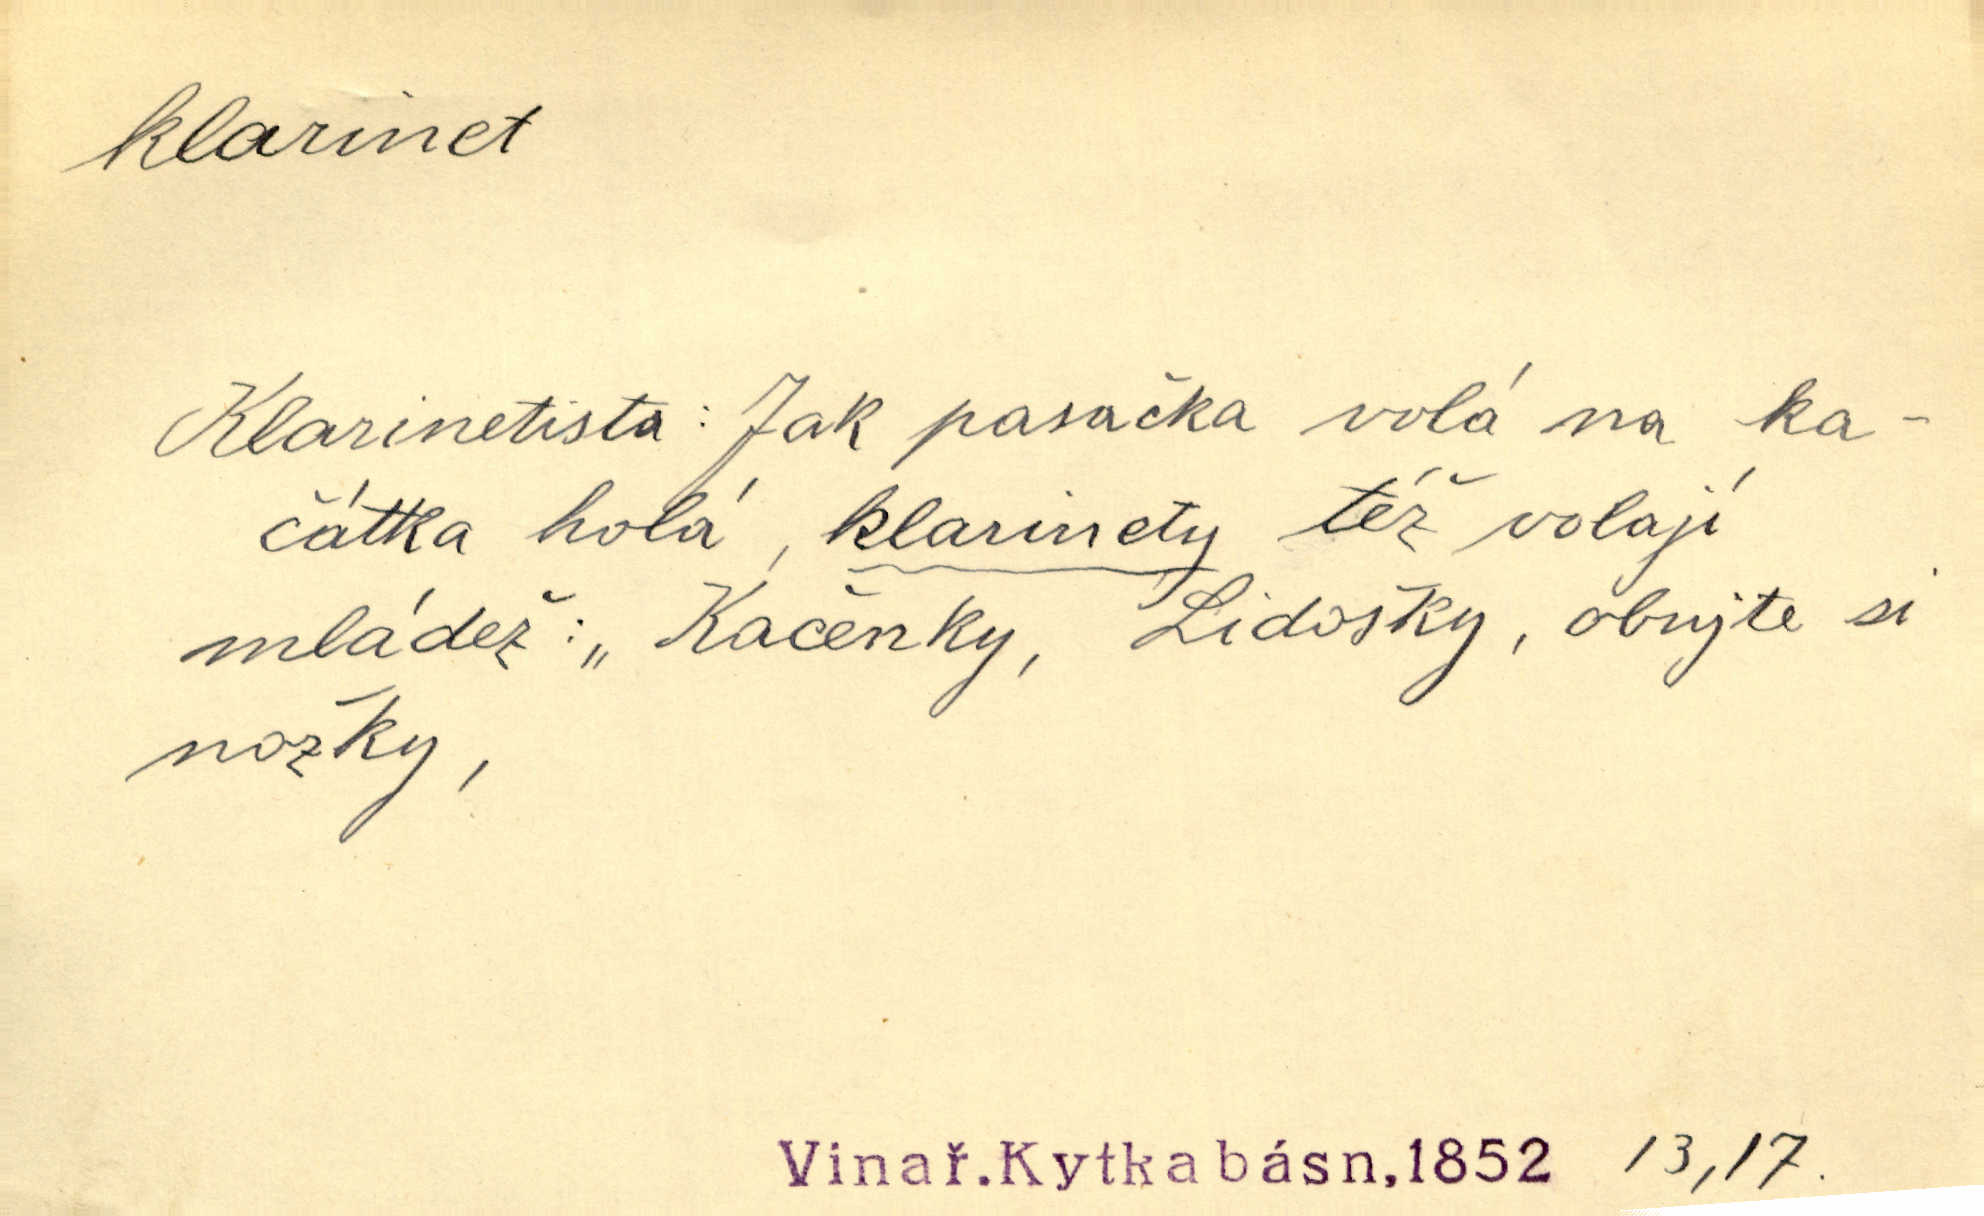 klarinet
Klarinetista: Jak pasačka volá na ka-
čátka holá, klarinety též volají
mládež: „Kačenky, Lidošky, obujte si
nožky,
Vinař.Kytka básn,1852 13,17.